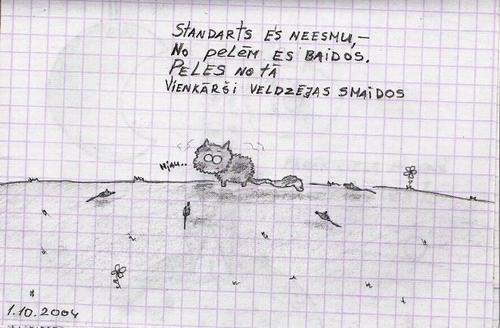 STANDARTS ES NEESMU,-
NO PELĒM ES BAIDOS.
PELES NO TĀ
VIENKĀRŠI VELDZĒJAS SMAIDOS
ŅJAU...
1.10.2004